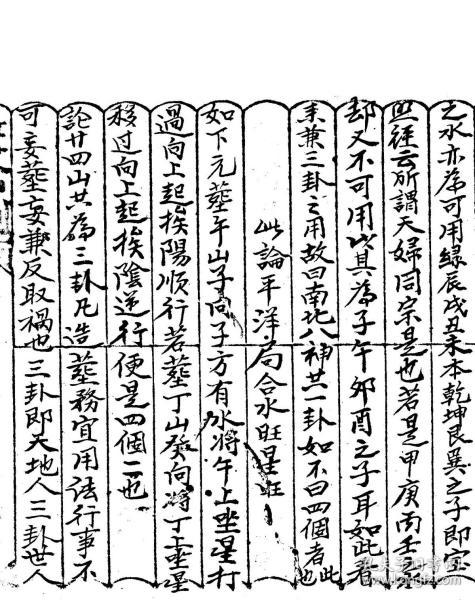 之水亦為可用緣辰戌丑未本乾坤艮巽之子即宝
照经云所謂夫婦同宗是也若是甲庚丙壬之
却又不可用以其為子午卯酉之子耳如此者
未兼三卦之用故曰南北八神共一卦如不曰四個者此也
此論平洋局合水旺星旺
如下元塟午山子向子方有水将午上坐星打
過向上起挨陽順行若塟丁山癸向将丁上坐星
移过向上起挨陰逆行便是四個一也
論廿四山共為三卦凡造塟務宜用法行事不
可妄塟妄兼反取禍也三卦即天地人三卦世人